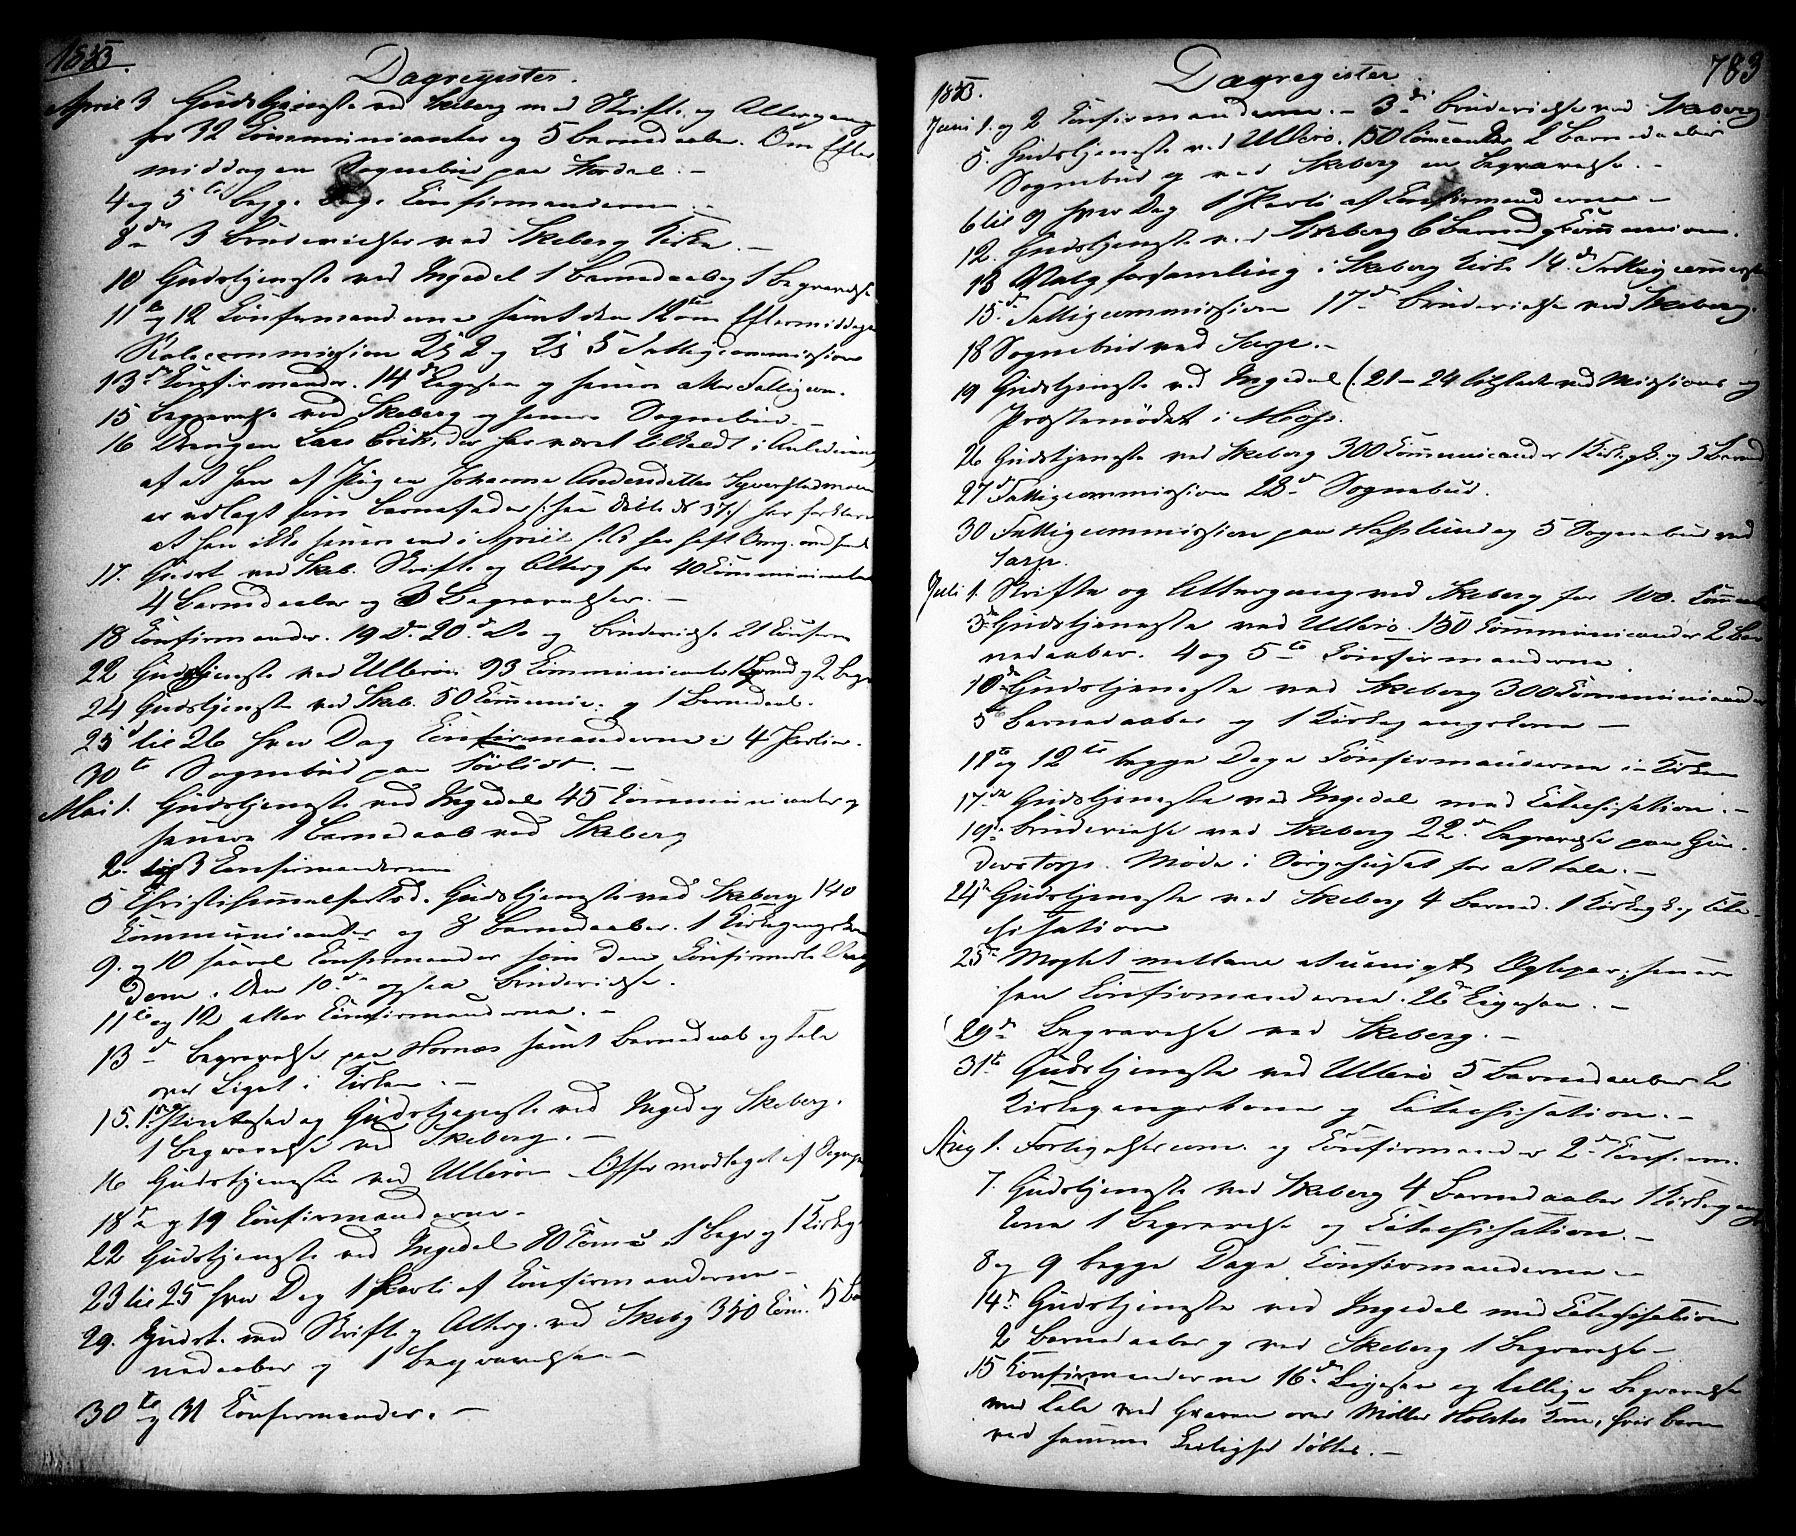 1853.
Dagregister.
April 3 Gudstjeneste ved Skeberg med Skrifte og Altergang
for 32 Communicanter og 5 Barnedaaber. Om Efter
middagen Sognebud paa
4 og 5te begge Dage Confirmanderne.
8de 3 Brudevielser ved Skeberg Kirke. –
10 Gudstjeneste ved Ingedal 1 Barnedaab og 1 Begravelse
11te og 12 Confirmanderne samt den 12 om Eftermiddagen
Skolecommission 2 og 5 Fattigcommission
13de Confirmander. 14de Ligesaa og senere atter Fattigcom.
15 Begravelse ved Skeberg og senere Sognebud. –
16 Drengen Lars Erik. der har været tilkaldt i Anledning
af at han af Pigen Johanne Andersdatter
er udlagt som Barnefader har forklaret
at han ikke senere end i April
17. Gudst. ved Skeb. Skrifte og Alterg for 40 Communicanter
4 Barnedaaber og 3 Begravelser. –
18 Confirmander. 19 Do 20de Do og Brudevielse 21 Confirm
22 Gudstjeneste ved Ullerøe 93 Communicanter 1 Barned og 2 Begr
24 Gudstjeneste ved Skeb. 50 Commun. og 1 Barnedaab.
25 til 26 hver Dag Confirmanderne i 4 Partier.
30te Sognebud paa
Mai 1. Gudstjeneste ved Ingedal 45 Communicanter og
senere 1 Barnedaab ved Skeberg
2. og 3 Confirmanderne
5 Christihimmelfartsd. Gudstjeneste ved Skeberg 140
Communicanter og 8 Barnedaaber. 1 Kirkegangskone
9. og 10 saavel Confirmander som den Confirmerte Ung
dom. Den 10de ogsaa Brudevielse.
11te og 12 atter Confirmanderne. –
13de Begravelse paa Hornæs samt Barnedaab og Tale
over Liget i Kirken. –
15. 1ste Pintsedag Gudstjeneste ved Inged og Skeberg.
1 Begravelse ved Skeberg. –
16 Gudstjeneste ved Ullerøe Offer modtaget af
18de og 19 Confirmanderne –
22 Gudstjeneste ved Ingedal 80 Comm. 1 Begr og 1 Kirkeg.
23 til 25 hver Dag 1 Parti af Confirmanderne –
29. Gudst. med Skrift og Alterg. ved Skebg 350 Com. 5 Bar
nedaaber og 1 Begravelse –
30te og 31 Confirmander. –
783
1853.
Dagregister.
Juni 1. og 2 Confirmanderne. – 3de Brudevielse ved Skeberg
5. Gudstjeneste ved Ullerø. 150 Comcanter 2 Barnedaaber
Sognebud og ved Skeberg en Begravelse. –
6 til 9 hver Dag 1 Parti af Confirmanderne –
12. Gudstjeneste ved Skeberg 6 Barned og Commun.
13 Valgforsamling i Skeberg Kirke 14de Fattigcommission
15de Fattigcommission 17de Brudevielse ved Skeberg.
18 Sognebud ved Sarp. –
19 Gudstjeneste ved Ingedal (21–24 tilstede ved Missions og
Præstemødet i Moss.
26 Gudstjeneste ved Skeberg 300 Communicander 1 Kirkegk. og 3 Barned
27de Fattigcommission 28de Sognebud.
30 Fattigcommission paa Hafslund og 5 Sognebud ved
Sarp.
Juli 1. Skrifte og Altergang ved Skeberg for 100. Commun
3. Gudstjeneste ved Ullerø. 150 Communicander 2 Bar
nedaaber. 4 og 5te Confirmanderne.
10de Gudstjeneste ved Skeberg 300 Communicander
5 Barnedaaber og 1 Kirkegangskone –
11te og 12te begge Dage Confirmanderne i Kirken
17de Gudstjeneste ved Ingedal med Catechisation. –
19de Brudevielse ved Skeberg 22de Begravelse paa Gun
derstorp. Møde i Sørgehuset for at tale. –
24de Gudstjeneste ved Skeberg 4 Barned. 1 Kirkegk. og Cate-
chisation
25de Mæglet mellem et uenigt Ægtepar, senere
paa Confirmanderne. 26de Ligesaa. –
29de Begravelse ved Skeberg. –
31te Gudstjeneste ved Ullerø 5 Barnedaaber 2
Kirkegangskoner og Catechisation. –
Aug 1. Forligelsescom. og Confirmander 2de Confirm.
7. Gudstjeneste ved Skeberg 4 Barnedaaber 1 Kirkegangs
kone 1 Begravelse og Catechisation. –
8 og 9 begge Dage Confirmanderne –
14de Gudstjeneste ved Ingedal med Catechisation
2 Barnedaaber og ved Skeberg 1 Begravelse –
15 Confirmanderne 16de Ligesaa og tillige Begravelse
med Tale ved Graven over Møller Holstes Kone, hvis Barn
ved samme Leilighed døbtes. –